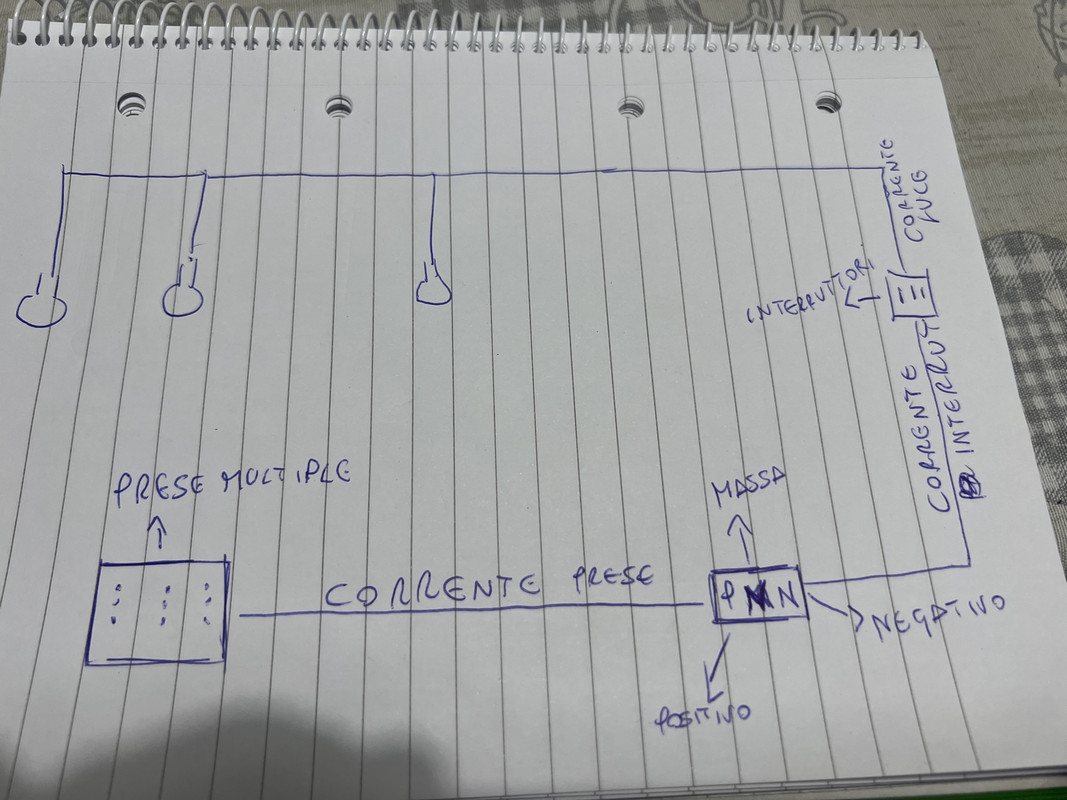 CORRENTE
LUCE
INTERRUTTORI
CORRENTE
INTERRUT
PRESE MULTIPLE
MASSA
CORRENTE PRESE
P M N
NEGATIVO
POSITIVO